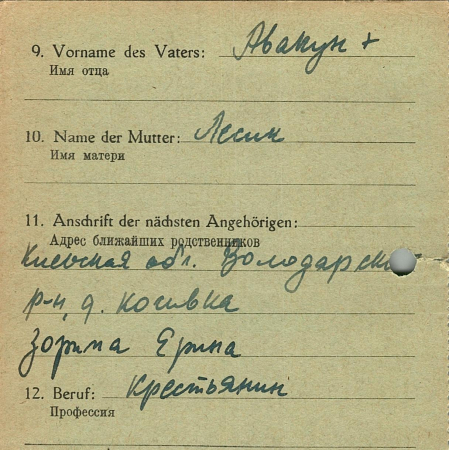 9. Vorname des Vaters: Авакун +
Имя отца
10. Name der Mutter: Лесик
Имя матери
11. Anschrift der nächsten Angehörigen:
Адрес ближайших родственников
Киевская обл. Володарский
р-н, д. Косивка
Зорина Ерина
12. Beruf: Крестьянин
Профессия